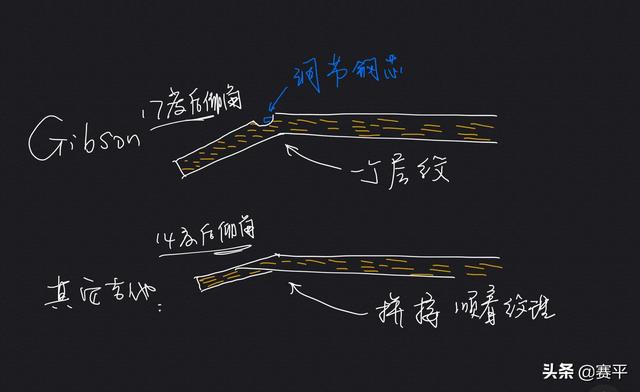 调节钢芯
17度后仰角
Gibson
层纹
14度后仰角
其它吉他:
拼接 顺着纹理
头条 @赛平